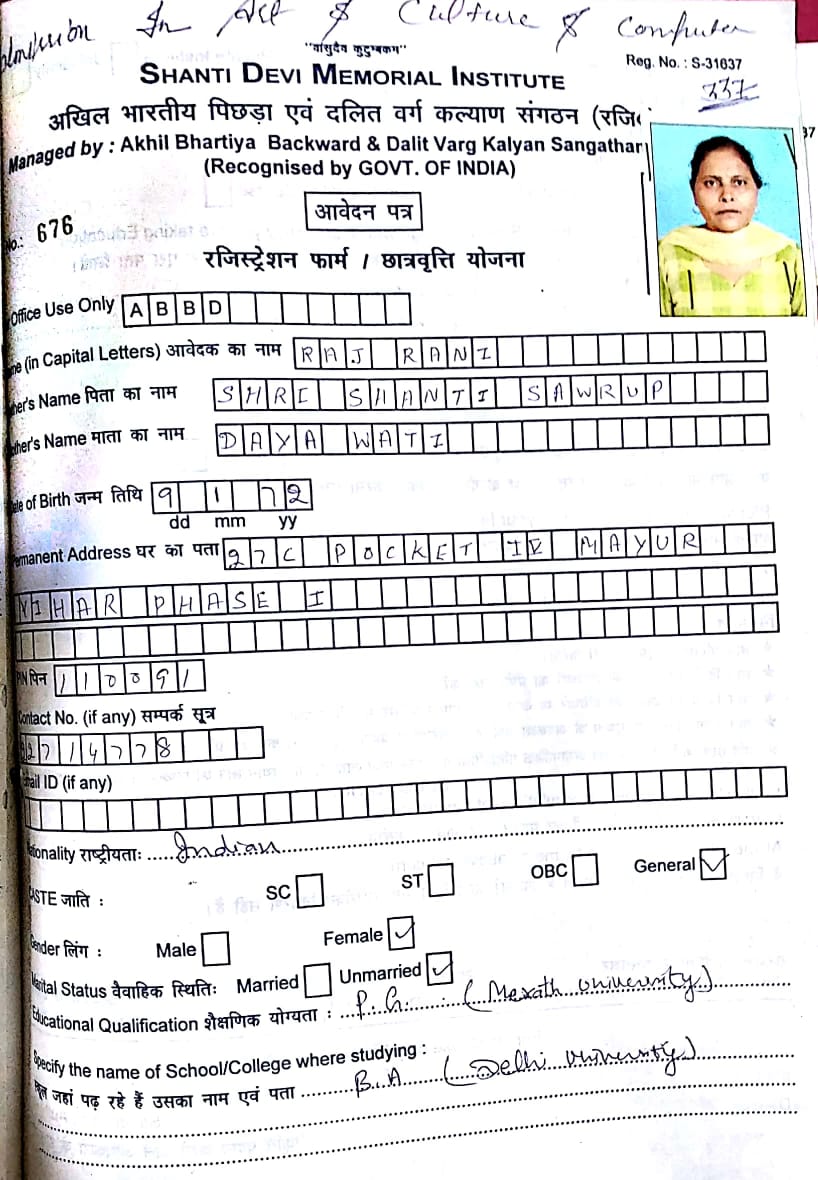 In Art & Culture & Computer
"वासुदैव कुटुम्बकम"
Reg. No. : S-31637
SHANTI DEVI MEMORIAL INSTITUTE
337
अखिल भारतीय पिछड़ा एवं दलित वर्ग कल्याण संगठन (रजि
Managed by : Akhil Bhartiya Backward & Dalit Varg Kalyan Sangathan
(Recognised by GOVT. OF INDIA)
No.: 676
आवेदन पत्र
रजिस्ट्रेशन फार्म / छात्रवृत्ति योजना
Office Use Only A B B D
(in Capital Letters) आवेदक का नाम RAJ RANI
her's Name पिता का नाम SHRI SHANTI SAWRUP
ther's Name माता का नाम DAYA WATI
of Birth जन्म तिथि 9 1 72
dd mm yy
rmanent Address घर का पता 27C POCKET IV MAYUR
VIHAR PHASE I
पिन 110091
Contact No. (if any) सम्पर्क सूत्र
22714778
ail ID (if any)
ationality राष्ट्रीयताः Indian
ASTE जाति : SC ST OBC General ✓
ender लिंग : Male Female ✓
Marital Status वैवाहिक स्थितिः Married Unmarried ✓
Educational Qualification शैक्षणिक योग्यता : P.G. (Merath University)
Specify the name of School/College where studying :
जहां पढ़ रहे हैं उसका नाम एवं पता B.A (Delhi University)